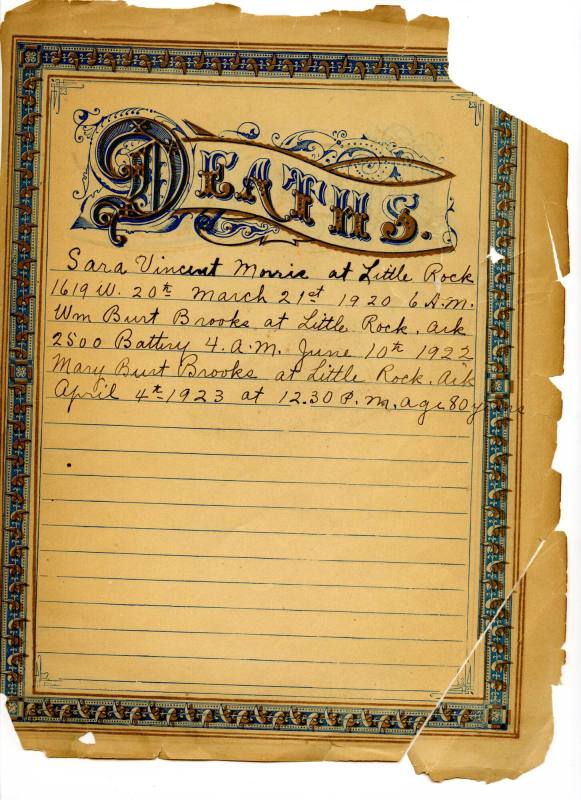 DEATHS.
Sara Vincent Morris at Little Rock
1619 W. 20th March 21st 1920 6 A.M.
Wm Burt Brooks at Little Rock, Ark
2500 Battery 4. A.M. June 10th 1922
Mary Burt Brooks at Little Rock, Ark
April 4th 1923 at 12.30 P.M. age 80 years